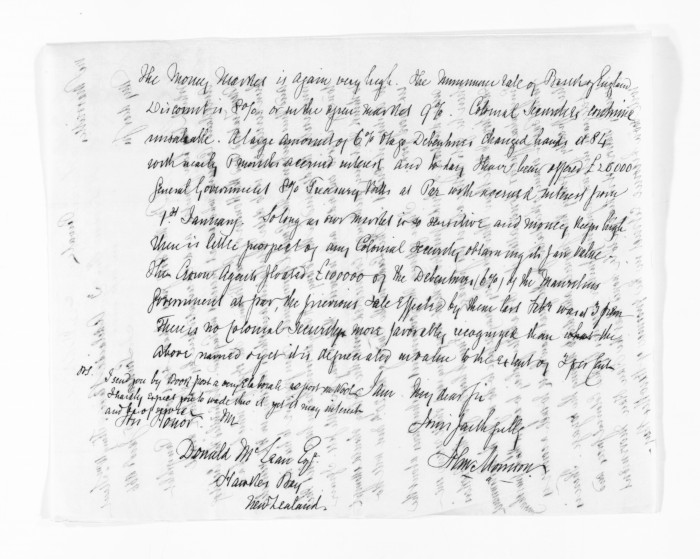 The Money Market is again very high. The minimum rate of Bank of England
Discount is 8% or in the open market 9%. Colonial Securities continue
unsaleable. A large amount of 6% Otago Debentures changed hands at 84
with nearly months accrued interest and to day I have been offered £26000
General Government 8% Treasury Bills at Par with accrued interest from
1st January. So long as our market is so sensitive and money keeps high
there is little prospect of any Colonial Security obtaining its fair value.
The Crown Agents floated £100000 of the Debentures (6%) of the Mauritius
Government at par, the previous sale effected by them last Feby was at 7 prem
There is no Colonial Security more favorably recognized than the
above named & yet it is depreciated in value to the extent of 7 per Cent
P.S.
I send you by Book post a very elaborate report on
I hardly expect you to wade thro it yet it may interest
and be of service
I am My dear Sir
Yours faithfully
Jno Morrison
His Honor Mr
Donald McLean Esqr
Hawkes Bay
New Zealand.